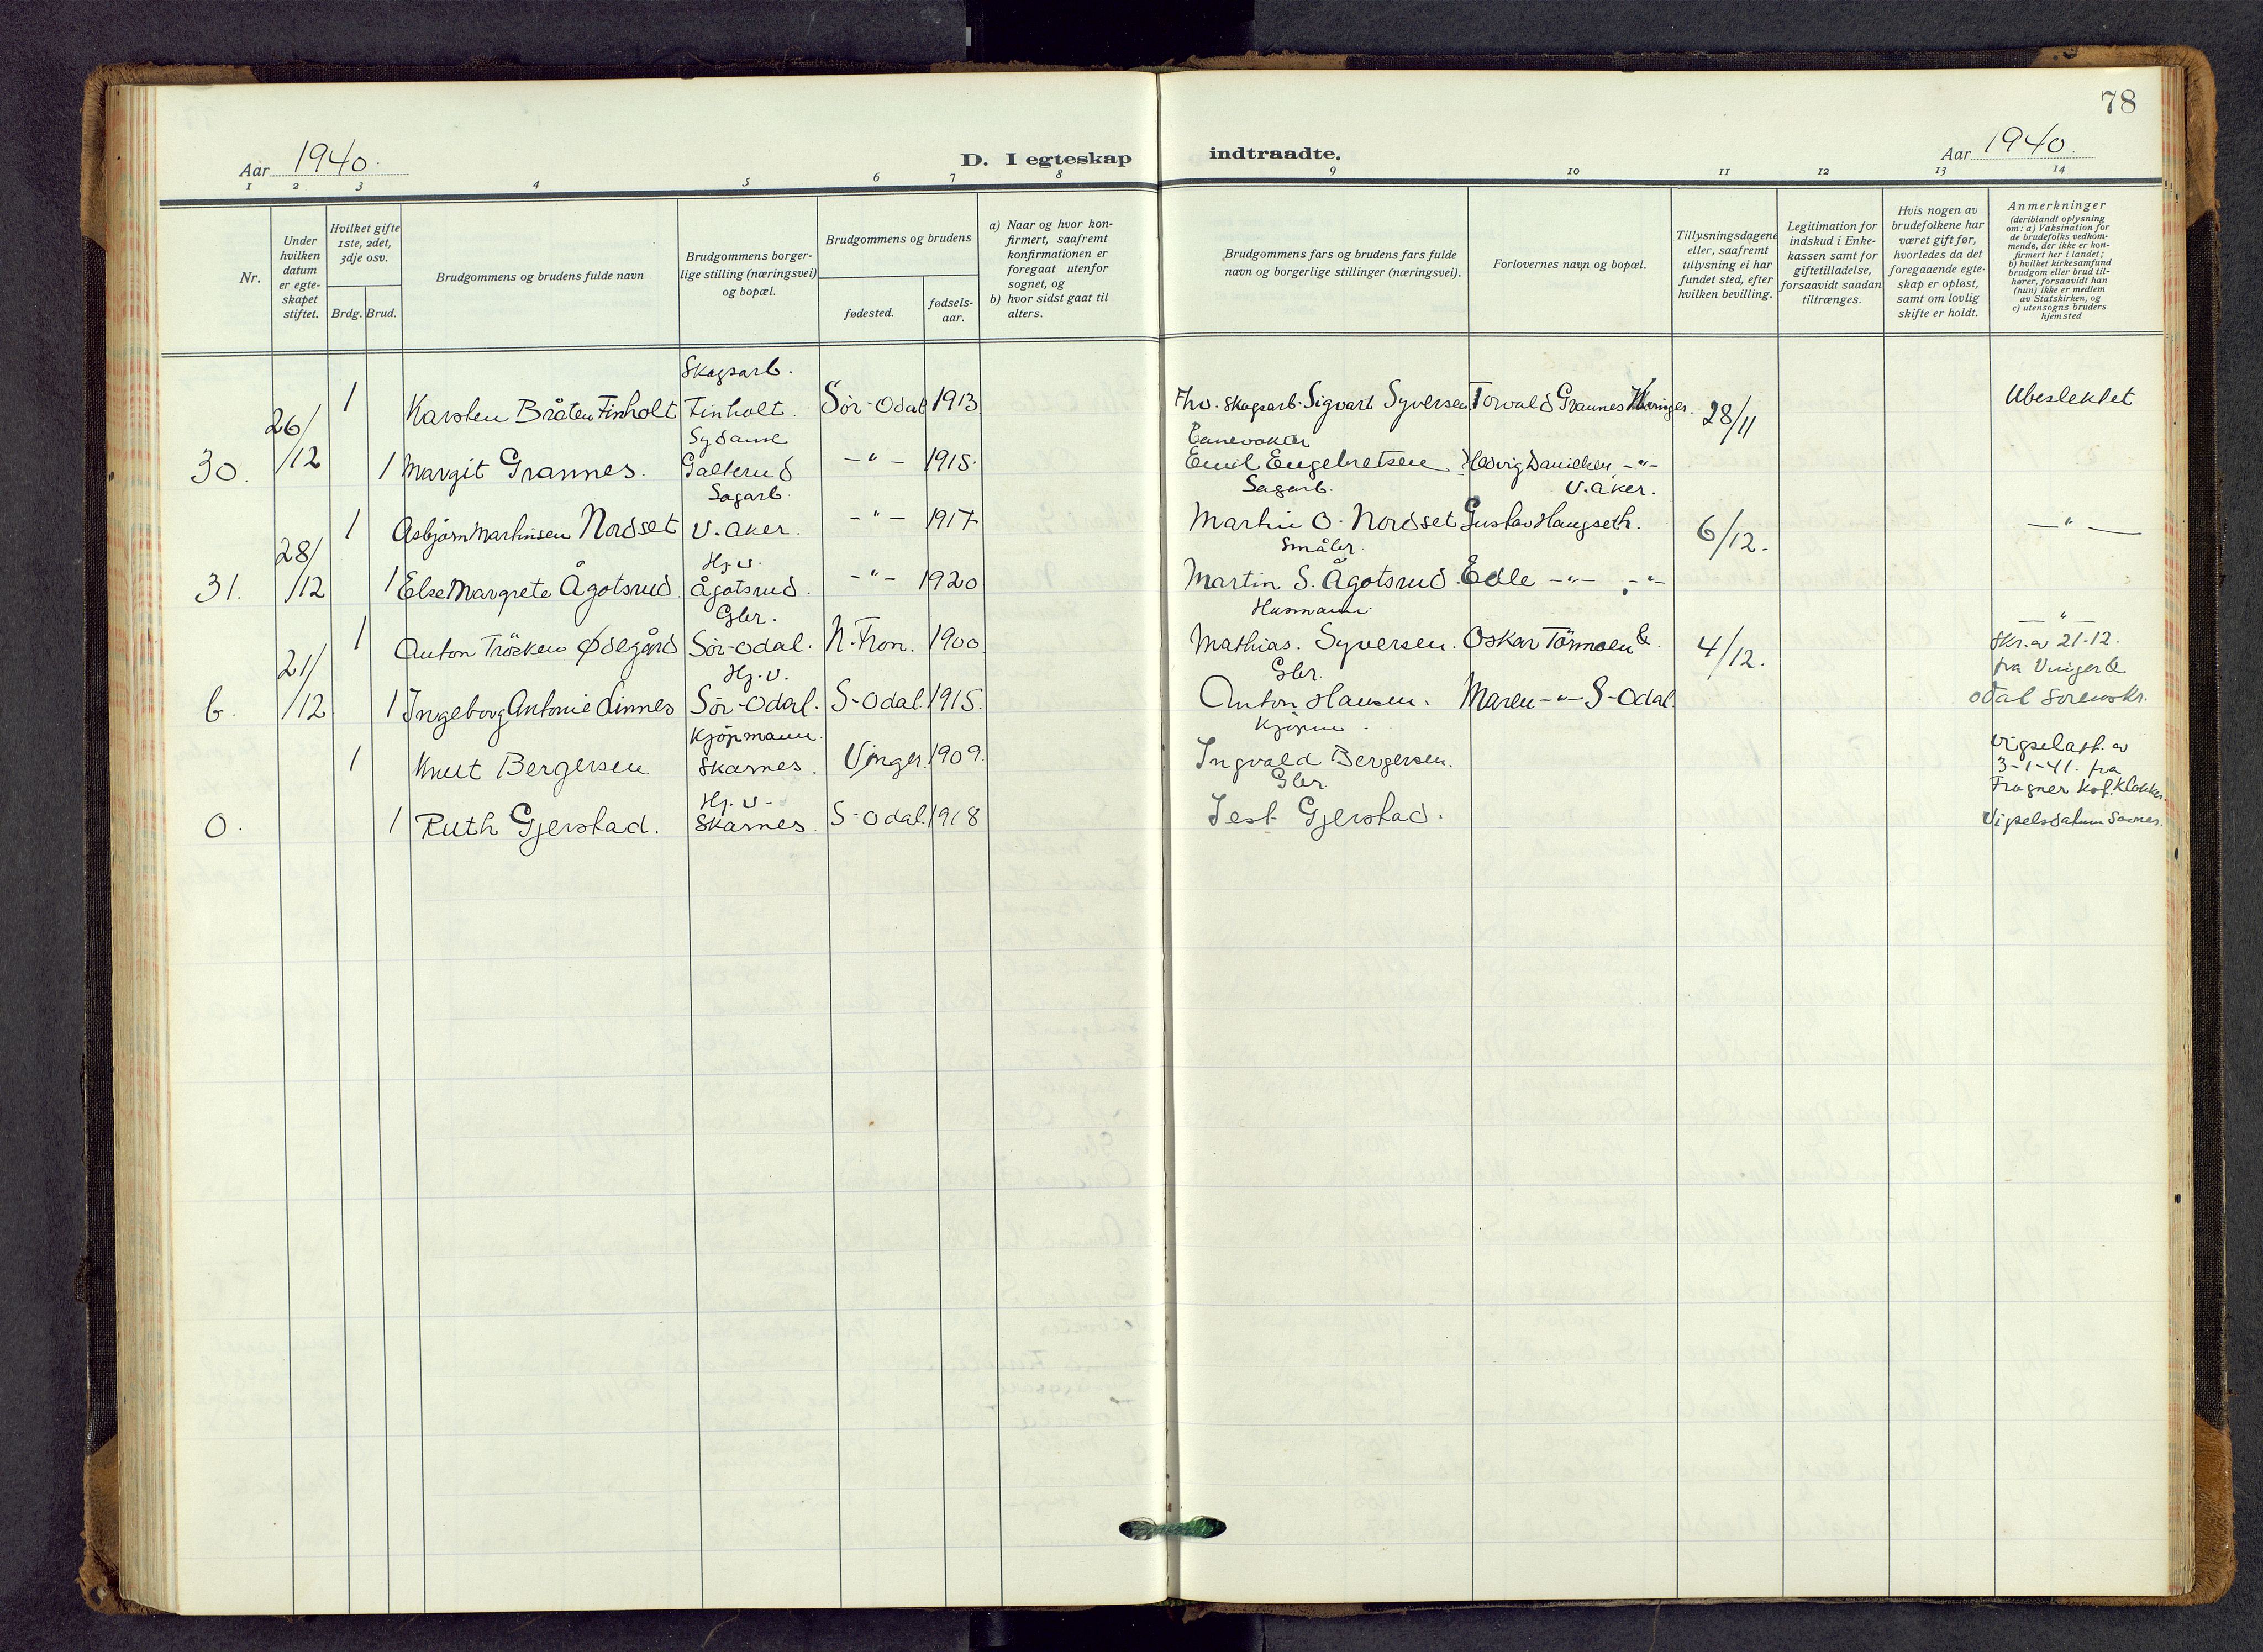 78
Aar 1940.
D. I egteskap
indtraadte.
Aar 1940.
1 2 3 4 5 6 7 8 9 10 11 12 13 14
Nr.
Under hvilken datum er egteskapet stiftet.
Hvilket gifte 1ste, 2det, 3dje osv.
Brdg. Brud.
Brudgommens og brudens fulde navn
Brudgommens borgerlige stilling (næringsvei) og bopæl.
Brudgommens og brudens
fødested.
fødselsaar.
a) Naar og hvor konfirmert, saafremt konfirmationen er foregaat utenfor sognet, og
b) hvor sidst gaat til alters.
Brudgommens fars og brudens fars fulde navn og borgerlige stillinger (næringsvei).
Forlovernes navn og bopæl.
Tillysningsdagene eller, saafremt tillysning ei har fundet sted, efter hvilken bevilling.
Legitimation for indskud i Enkekassen samt for giftetilladelse, forsaavidt saadan tiltrænges.
Hvis nogen av brudefolkene har været gift før, hvorledes da det foregaaende egteskap er opløst, samt om lovlig skifte er holdt.
Anmerkninger (deriblandt oplysning om: a) Vaksination for de brudefolks vedkommende, der ikke er konfirmert her i landet; b) hvilket kirkesamfund brudgom eller brud tilhører, forsaavidt han (hun) ikke er medlem av Statskirken, og c) utensogns bruders hjemsted
Skogsarb.
26/12 1 Karsten Bråten Finholt Finholt. Sør-Odal 1913 Fhv. skogsarb. Sigvart Syversen Torvald Grannes 28/11 Ubeslektet
Sydame Banevokter
30. 1 Margit Grannes. Galterud -"- 1915. Emil Engebretsen Hedvig Danielsen -"-
Sagarb. Sagarb. V. Aker.
28/12 1 Asbjørn Martinsen Nordset V. Aker. -"- 1917 Martin O. Nordset Gustav Haugseth. 6/12. -"-
Hj. v. Småbr.
31. 1 Else Margrete Ågotsrud. Ågotsrud. -"- 1920 Martin S. Ågotsrud. Edle -"- -"-
Gbr. Husmann. -"-
21/12 1 Anton Trösken Ødegård Sør-Odal. N. Fron. 1900 Mathias. Syversen. Oskar Tørmoen 4/12. Skr. av 21-12.
Hj. v. Gbr. fra Vinger &
b. 1 Ingeborg Antonie Linnes Sør-Odal. S-Odal. 1915. Anton Hansen. Maren -"- S-Odal. Odal Sorenskr.
Kjøpmann. Kjøpm.
1 Knut Bergersen Skarnes. Vinger. 1909. Ingvald Bergersen. Vigselatt. av
3-1-41. fra
Hj. v. Gbr. Frogner
0. 1 Ruth Gjerstad. Skarnes. S-Odal. 1918 Gjerstad. Vigselsdatum savnes.